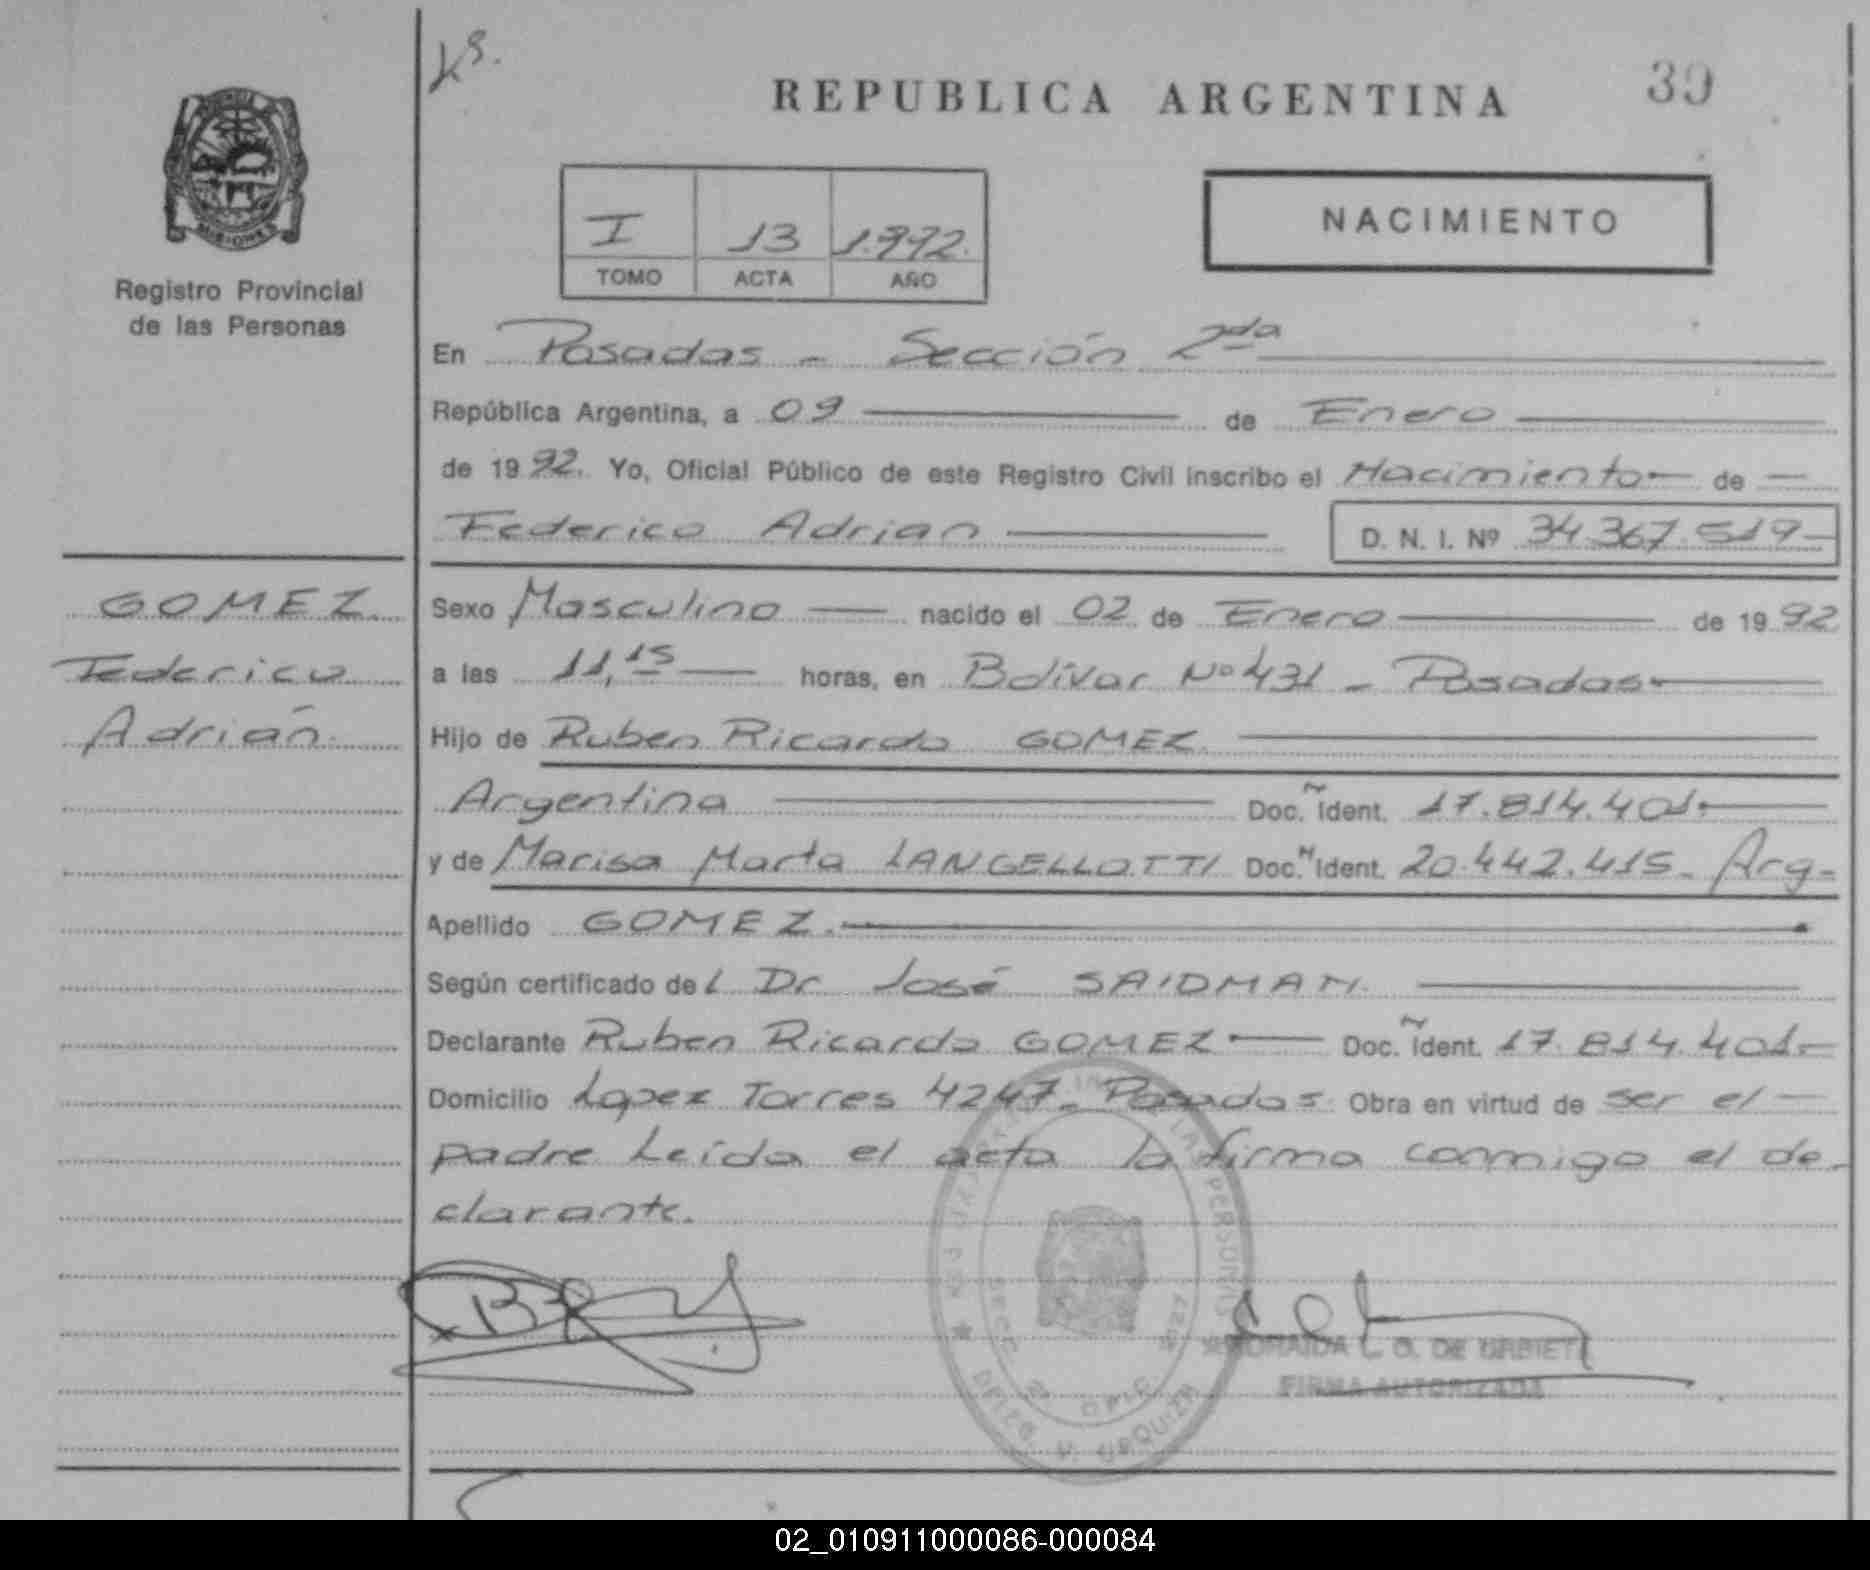 Ks.
REPUBLICA ARGENTINA
39
MISIONES
Registro Provincial
de las Personas
I 13 1.992.
TOMO ACTA AÑO
NACIMIENTO
En Posadas - Sección 2da
República Argentina, a 09 de Enero
de 1992. Yo, Oficial Público de este Registro Civil inscribo el Nacimiento de
Federico Adrian D. N. I. Nº 34.367.519
GOMEZ.
Federico
Adrián.
Sexo Masculino nacido el 02 de Enero de 1992
a las 11,15 horas, en Bolívar Nº 431 - Posadas
Hijo de Ruben Ricardo GOMEZ.
Argentina Doc. Ident. 17.814.401.
y de Marisa Marta LANGELLOTTI Doc. N Ident. 20.442.415 - Arg-
Apellido GOMEZ.
Según certificado del Dr José SAIDMAN.
Declarante Ruben Ricardo GOMEZ Doc. Ident. 17.814.401.
Domicilio Lopez Torres 4247 - Posadas Obra en virtud de ser el
padre Leída el acta la firma conmigo el de-
clarante.
L. O. DE URBIETA
FIRMA AUTORIZADA
02_010911000086-000084